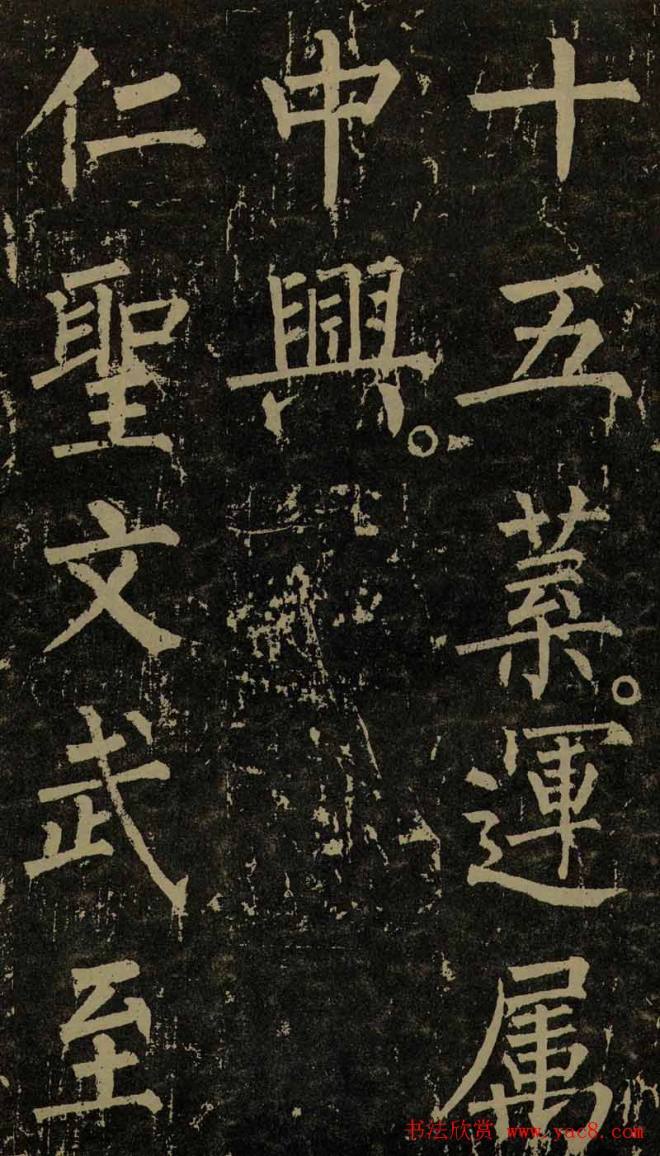 十五葉運属
中興
仁聖文武至
书法欣赏 www.yac8.com